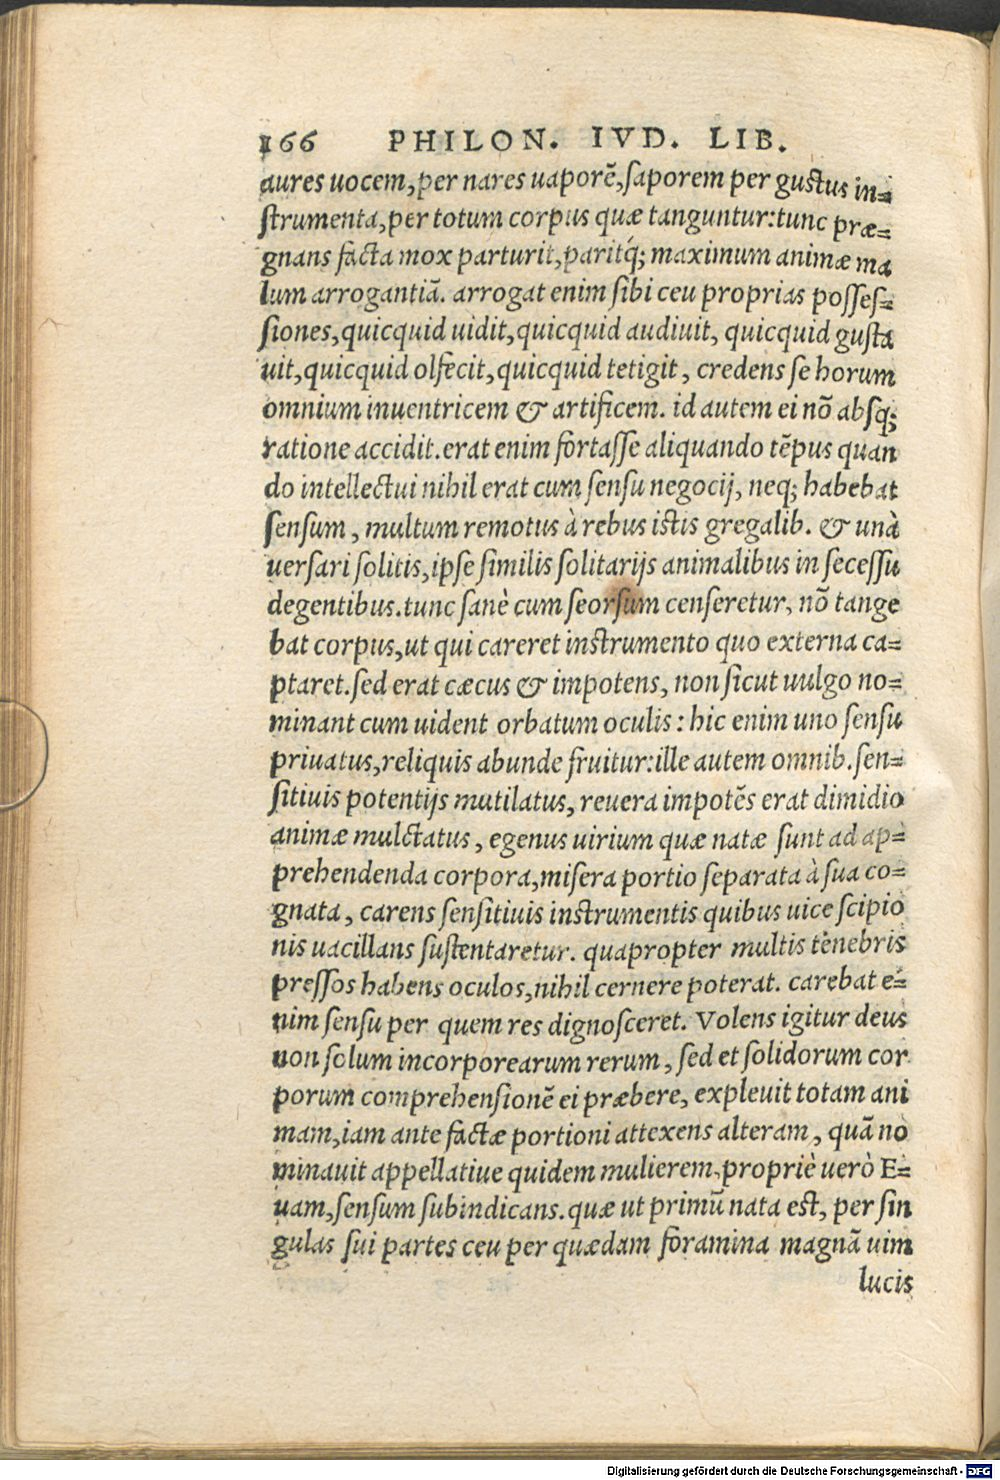 166 PHILON. IVD. LIB.
aures uocem, per nares uaporē, saporem per gustus in=
strumenta, per totum corpus quæ tanguntur: tunc præ=
gnans facta mox parturit, paritq́; maximum animæ ma
lum arrogantiā. arrogat enim sibi ceu proprias posses=
siones, quicquid uidit, quicquid audiuit, quicquid gusta
uit, quicquid olfecit, quicquid tetigit, credens se horum
omnium inuentricem & artificem. id autem ei nō absq;
ratione accidit. erat enim fortasse aliquando tēpus quan
do intellectui nihil erat cum sensu negocij, neq; habebat
sensum, multum remotus à rebus istis gregalib. & unà
uersari solitis, ipse similis solitarijs animalibus in secessu
degentibus. tunc sanè cum seorsum censeretur, nō tange
bat corpus, ut qui careret instrumento quo externa ca=
ptaret. sed erat cæcus & impotens, non sicut uulgo no=
minant cum uident orbatum oculis: hic enim uno sensu
priuatus, reliquis abunde fruitur: ille autem omnib. sen=
sitiuis potentijs mutilatus, reuera impotēs erat dimidio
animæ mulctatus, egenus uirium quæ natæ sunt ad ap=
prehendenda corpora, misera portio separata à sua co=
gnata, carens sensitiuis instrumentis quibus uice scipio
nis uacillans sustentaretur. quapropter multis tenebris
pressos habens oculos, nihil cernere poterat. carebat e=
nim sensu per quem res dignosceret. Volens igitur deus
non solum incorporearum rerum, sed et solidorum cor
porum comprehensionē ei præbere, expleuit totam ani
mam, iam ante factæ portioni attexens alteram, quā no
minauit appellatiue quidem mulierem, propriè uerò E=
uam, sensum subindicans. quæ ut primū nata est, per sin
gulas sui partes ceu per quædam foramina magnā uim
lucis
Digitalisierung gefördert durch die Deutsche Forschungsgemeinschaft - DFG